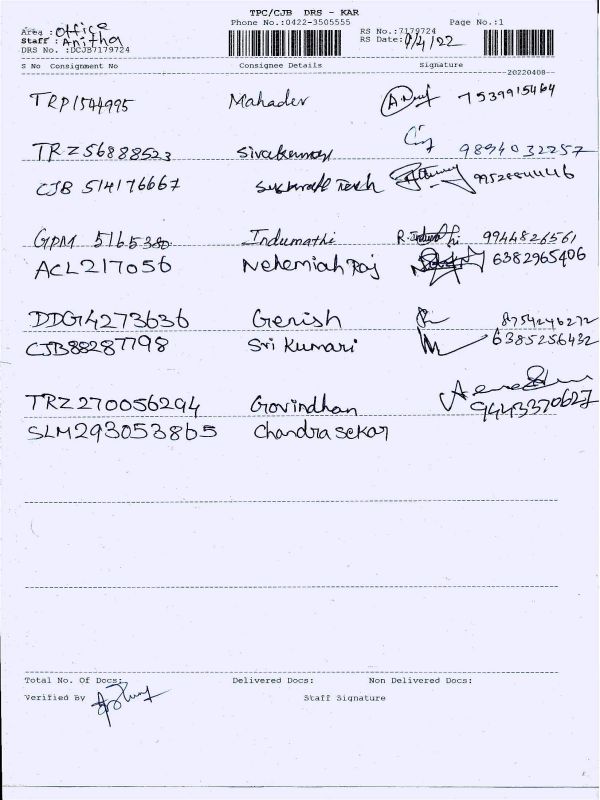 TPC/CJB DRS - KAR
Area : Office Phone No.:0422-3505555 Page No.:1
Staff : Anitha RS No.:7179724
DRS No. :DCJB7179724 RS Date: 9/4/22
S No Consignment No Consignee Details Signature
20220408
TRP1544995 Mahadev 7539915464
TRZ56888523 Sivakumar 9894032257
CJB 514176667
GPM 516538 Indumathi 9944826561
ACL217056 Nehemiah Raj 6382965406
DDG4273636 Gerish 8754246272
CJB88287798 Sri Kumari 6385256432
TRZ270056294 Govindhan 9443370627
SLM293053865 Chandra sekar
Total No. Of Docs: Delivered Docs: Non Delivered Docs:
Verified By Staff Signature